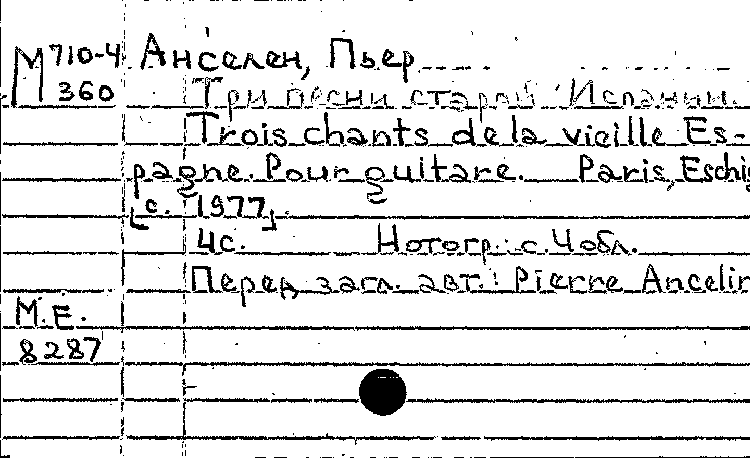 М 710-4 Анселен, Пьер
360 Три песни старой Испании.
Trois chants de la vieille Es-
pagne. Pour guitare. Paris, Eschi
[с. 1977].
4 с. Нотогр.: с. 4 обл.
Перед загл. авт.: Pierre Ancelin
М.Е.
8287